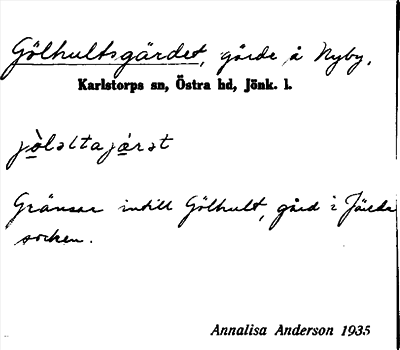 Gölhultsgärdet, gärde å Nyby,
Karlstorps sn, Östra hd, Jönk. l.
jòləltajárət
Gränsar intill Gölhult, gård i Järeda
socken.
Annalisa Anderson 1935